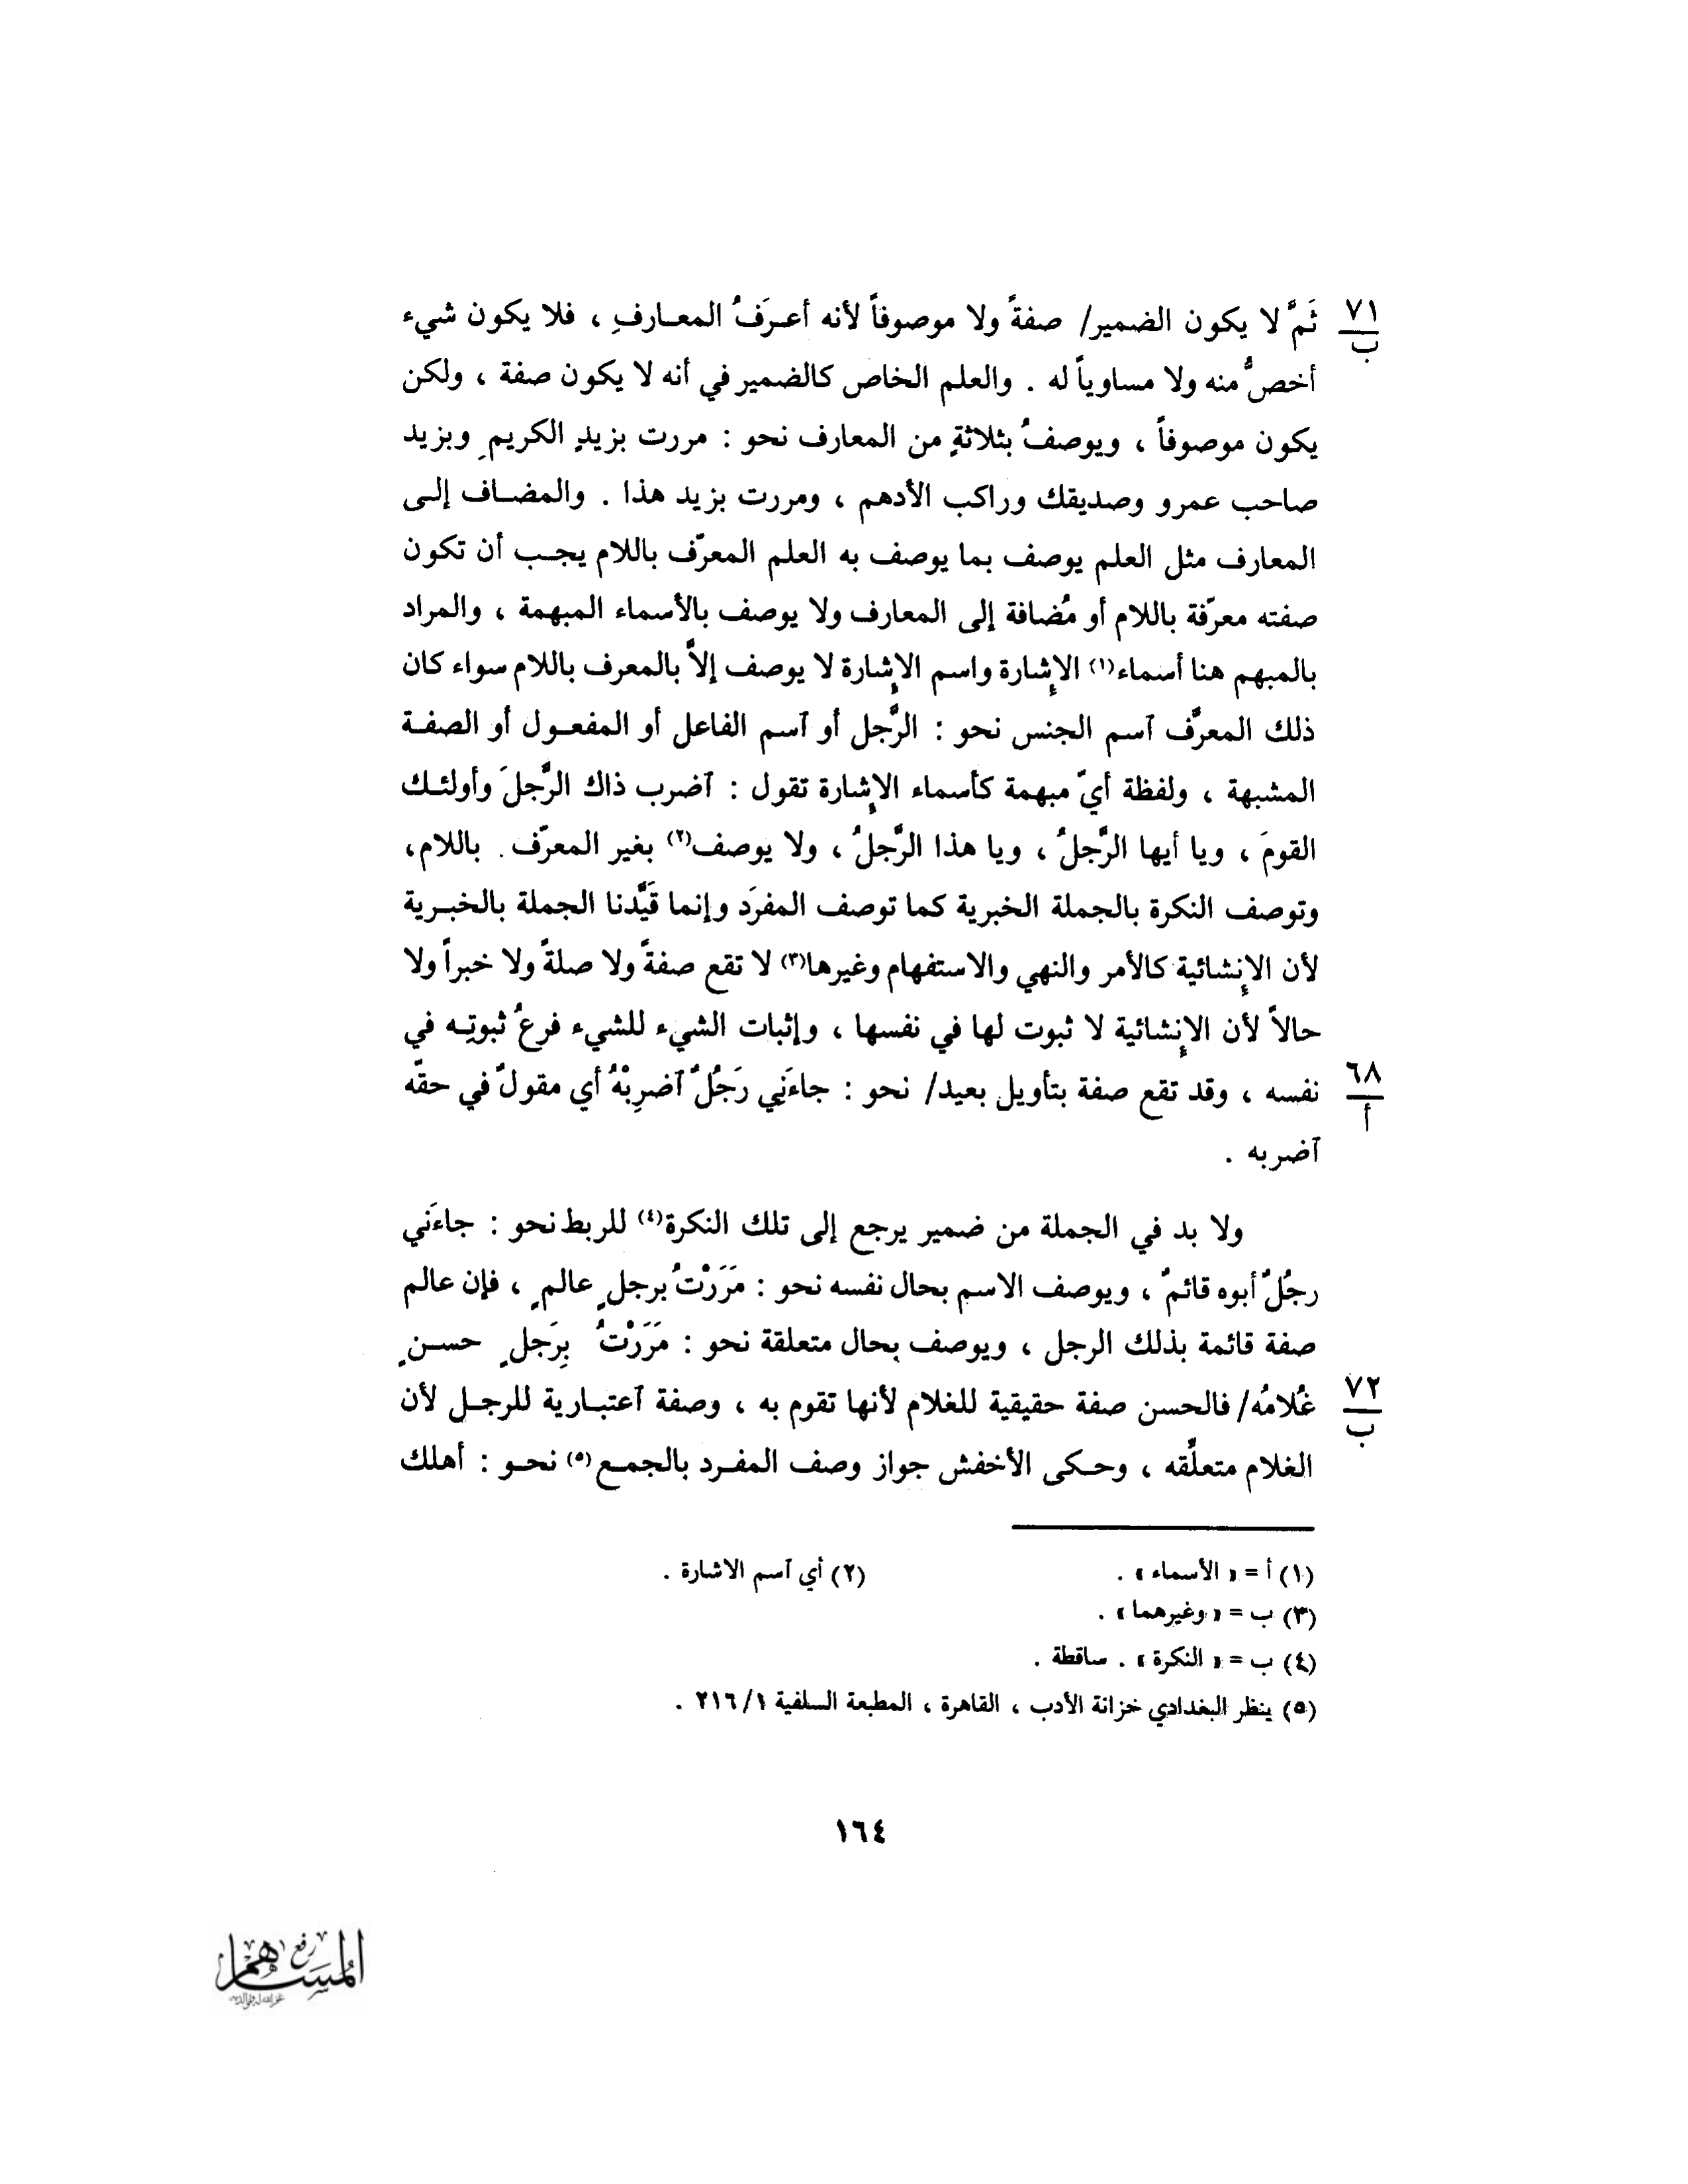 ٧١
ب
ثَمَّ لا يكون الضمير/ صفةً ولا موصوفاً لأنه أعـرَفُ المعـارفِ ، فلا يكون شيء
أخصُّ منه ولا مساوياً له . والعلم الخاص كالضمير في أنه لا يكون صفة ، ولكن
يكون موصوفاً ، ويوصفُ بثلاثةٍ من المعارف نحو : مررت بزيدٍ الكريمِ وبزيد
صاحب عمرو وصديقك وراكب الأدهم ، ومررت بزيد هذا . والمضـاف إلـى
المعارف مثل العلم يوصف بما يوصف به العلم المعرّف باللام يجـب أن تكون
صفته معرّفة باللام أو مُضافة إلى المعارف ولا يوصف بالأسماء المبهمة ، والمراد
بالمبهم هنا أسماء(١) الإشارة واسم الإشارة لا يوصف إلاَّ بالمعرف باللام سواء كان
ذلك المعرَّف آسم الجنس نحو : الرَّجل أو آسم الفاعل أو المفعـول أو الصفـة
المشبهة ، ولفظة أيّ مبهمة كأسماء الإشارة تقول : آضرب ذاك الرَّجلَ وأولئـك
القومَ ، ويا أيها الرَّجلُ ، ويا هذا الرَّجلُ ، ولا يوصف(٢) بغير المعرّف . باللام،
وتوصف النكرة بالجملة الخبرية كما توصف المفرَد وإنما قَيَّدنا الجملة بالخبـرية
لأن الإنشائية كالأمر والنهي والاستفهام وغيرها(٣) لا تقع صفةً ولا صلةً ولا خبراً ولا
حالاً لأن الإنشائية لا ثبوت لها في نفسها ، وإثبات الشيء للشيء فرعُ ثبوتِـه في
٦٨
أ
نفسه ، وقد تقع صفة بتأويل بعيد/ نحو : جاءَنِي رَجُلٌ آضرِبْهُ أي مقولٌ في حقّه
آضربه .
ولا بد في الجملة من ضمير يرجع إلى تلك النكرة(٤) للربط نحو : جاءَني
رجُلٌ أبوه قائمٌ ، ويوصف الاسم بحال نفسه نحو : مَرَرْتُ برجلٍ عالمٍ ، فإن عالم
صفة قائمة بذلك الرجل ، ويوصف بحال متعلقة نحو : مَرَرْتُ بِرَجلٍ حسـنٍ
٧٢
ب
غُلامُه/ فالحسن صفة حقيقية للغلام لأنها تقوم به ، وصفة آعتبـارية للرجـل لأن
الغلام متعلَّقه ، وحـكى الأخفش جواز وصف المفـرد بالجمـع(٥) نحـو : أهلك
(١) أ = « الأسماء » . (٢) أي آسم الاشارة .
(٣) ب = « وغيرهما » .
(٤) ب = « النكرة » . ساقطة .
(٥) ينظر البغدادي خزانة الأدب ، القاهرة ، المطبعة السلفية ١/ ٢١٦ .
١٦٤
رفع
المساهم
غفر الله له ولوالديه